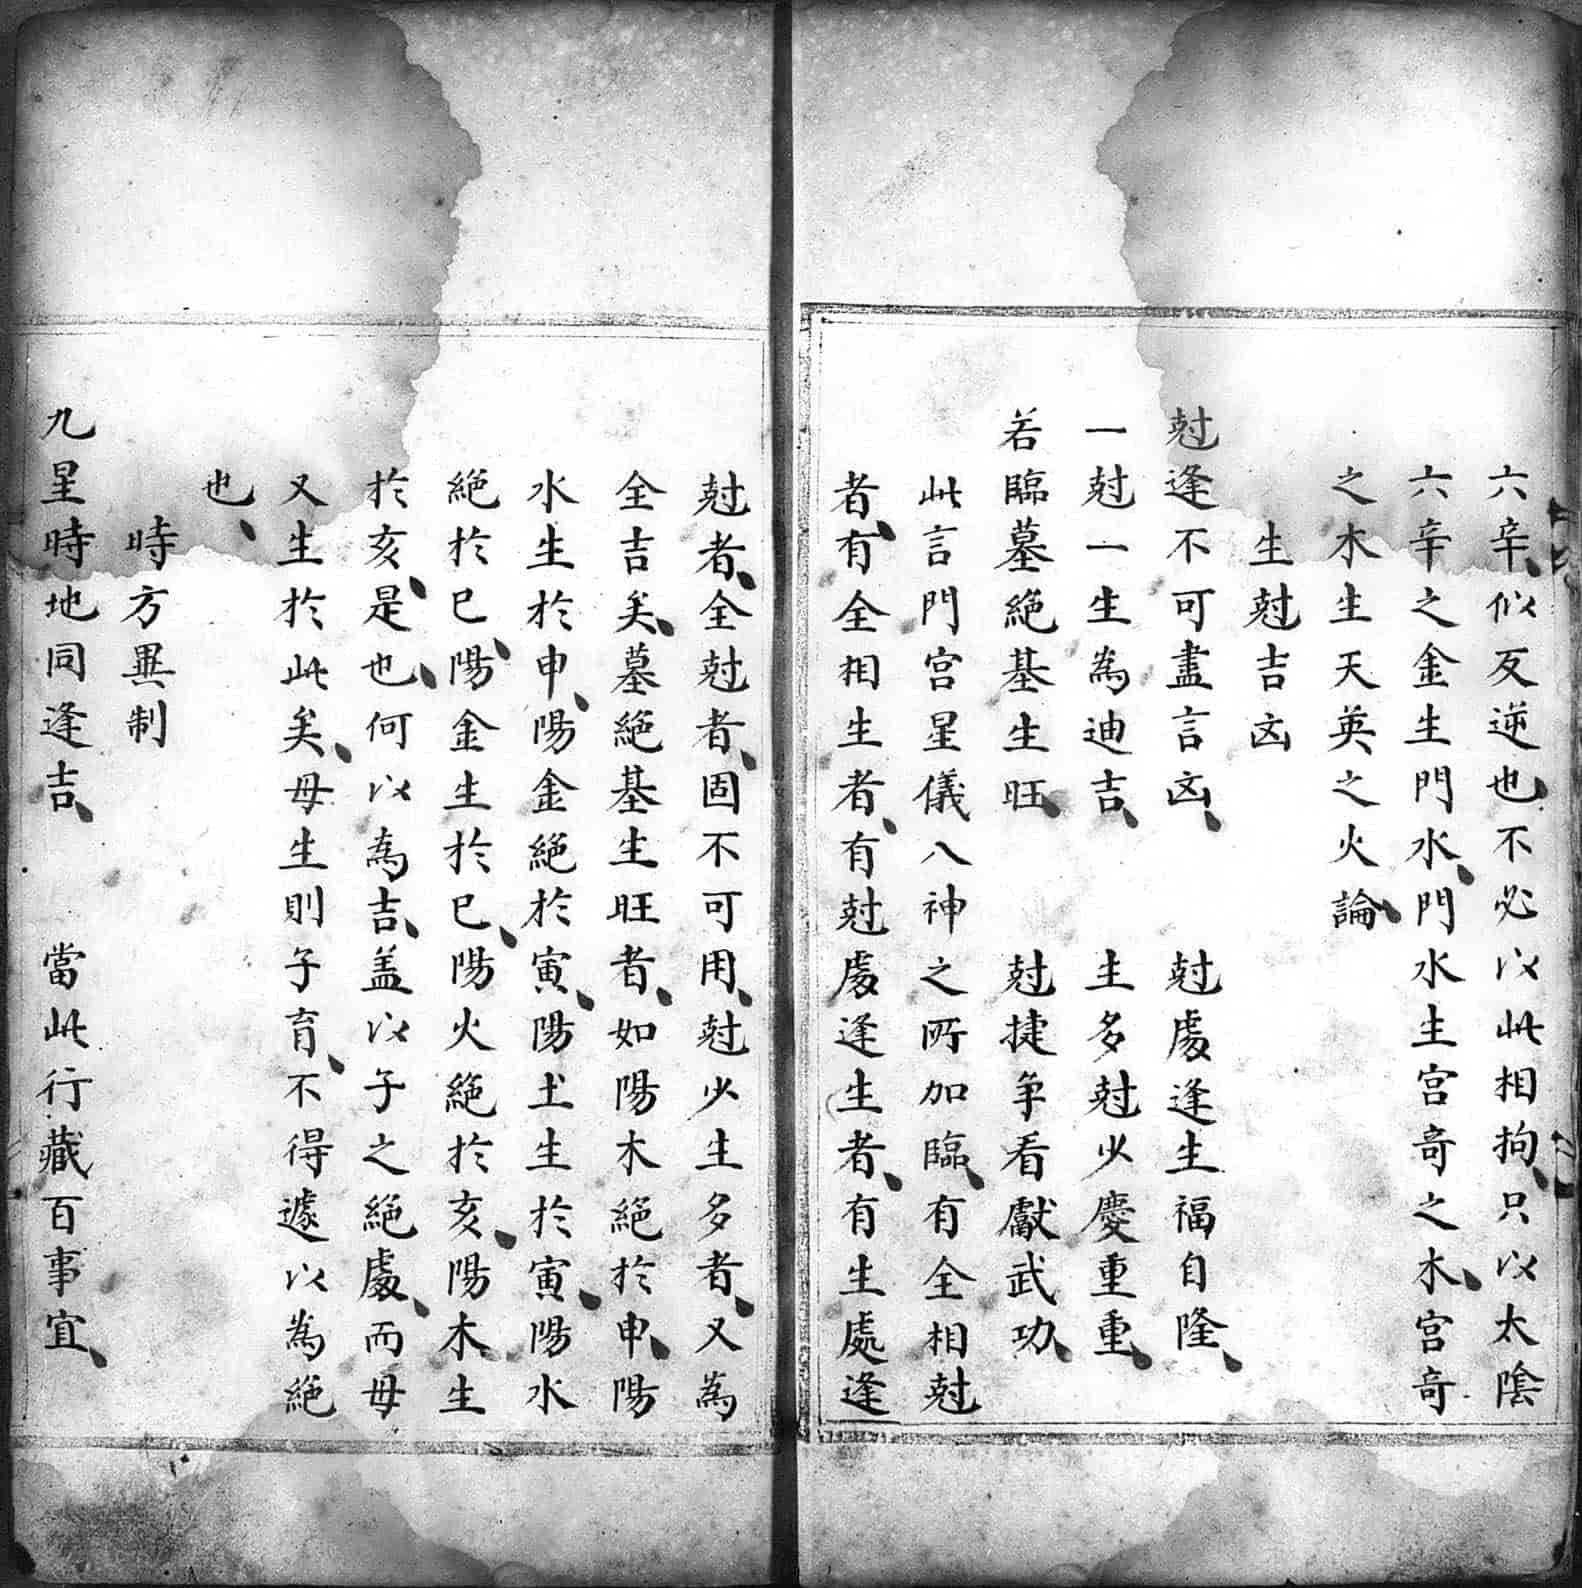 六辛、似反逆也、不必以此相拘、只以太陰
六辛之金生門水、門水生宮奇之木、宮奇
之木生天英之火論、
生尅吉凶
尅逢不可盡言凶、　尅處逢生福自隆、
一尅一生為迪吉、　生多尅少慶重重、
若臨墓絕基生旺、　尅捷争看獻武功、
此言門宮星儀八神之所加臨、有全相尅
者、有全相生者、有尅處逢生者、有生處逢
尅者、全尅者、固不可用、尅少生多者、又為
全吉矣、墓絕基生旺者、如陽木絕於申、陽
水生於申、陽金絕於寅、陽土生於寅、陽水
絕於巳、陽金生於巳、陽火絕於亥、陽木生
於亥、是也、何以為吉、盖以子之絕處、而母
又生於此矣、母生則子育、不得遽以為絕
也、
時方異制
九星時地同逢吉、　當此行藏百事宜、